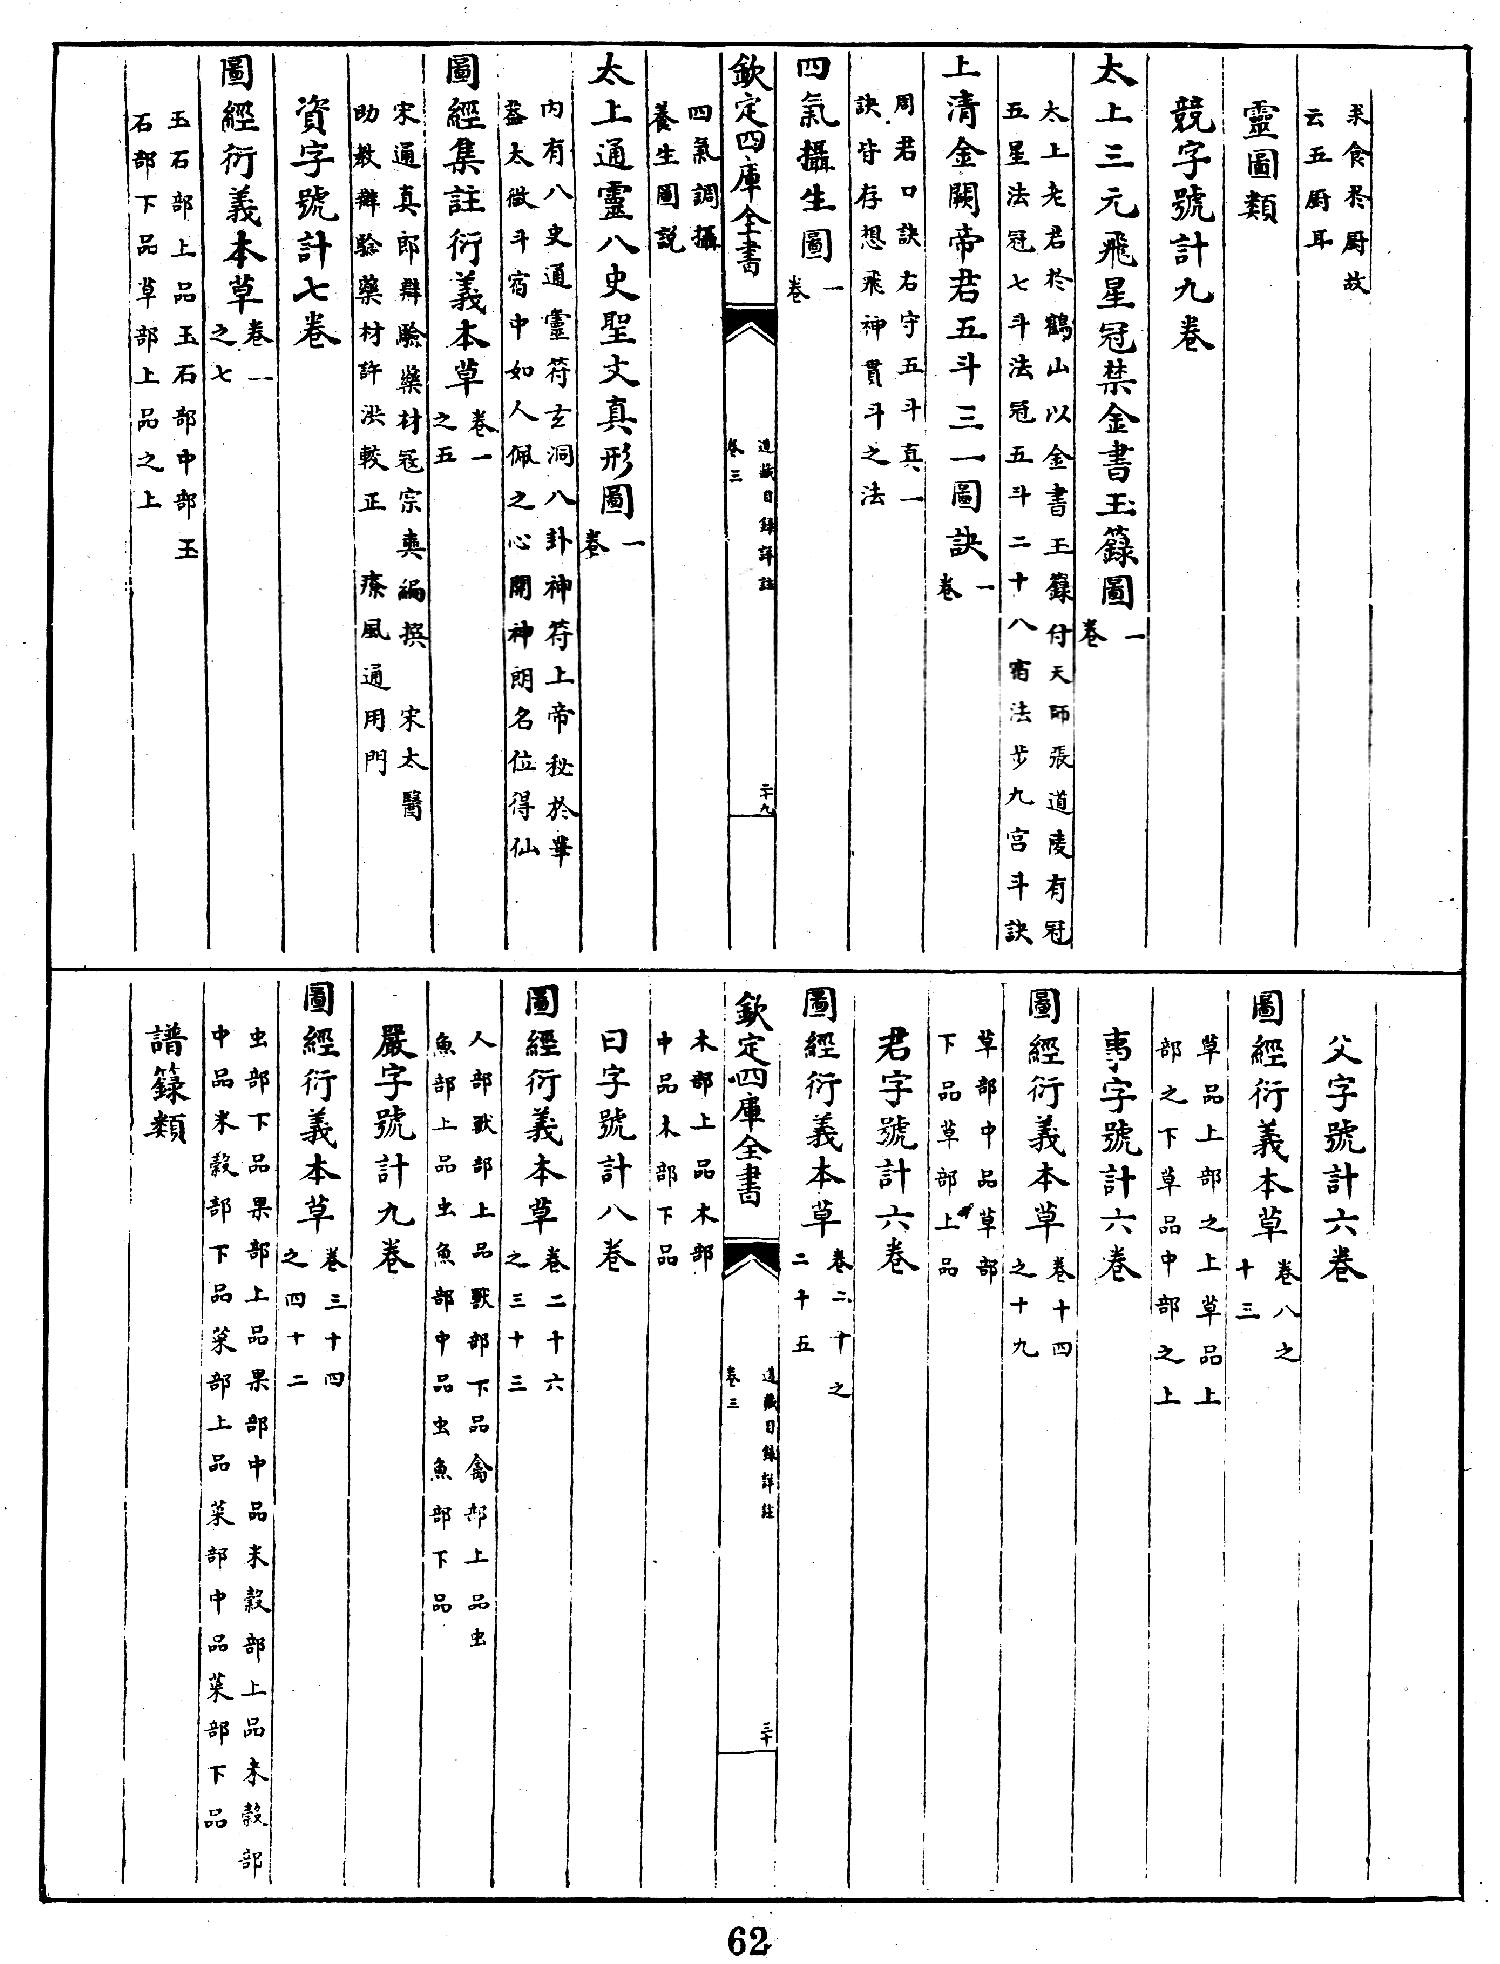 求食於厨故
云五厨耳
靈圖類
競字號計九卷
太上三元飛星冠禁金書玉籙圖一卷
太上老君於鶴山以金書玉籙付天師張道陵有冠
五星法冠七斗法冠五斗二十八宿法步九宫斗訣
上清金闕帝君五斗三一圖訣一卷
周君口訣右守五斗真一
訣皆存想飛神貫斗之法
四氣攝生圖一卷
欽定四庫全書
道藏目録詳註
卷三
二十九
四氣調攝
養生圖説
太上通靈八史聖文真形圖一卷
内有八史通靈符玄洞八卦神符上帝秘於華
蓋太微斗宿中如人佩之心開神朗名位得仙
圖經集註衍義本草卷一之五
宋通真郎辯驗藥材寇宗奭編撰 宋太醫
助教辯驗藥材許洪較正 療風通用門
資字號計七卷
圖經衍義本草卷一之七
玉石部上品玉石部中部玉
石部下品草部上品之上
父字號計六卷
圖經衍義本草卷八之十三
草品上部之上草品上
部之下草品中部之上
事字號計六卷
圖經衍義本草卷十四之十九
草部中品草部
下品草部上品
君字號計六卷
圖經衍義本草卷二十之二十五
欽定四庫全書
道藏目録詳註
卷三
三十
木部上品木部
中品木部下品
曰字號計八卷
圖經衍義本草卷二十六之三十三
人部獸部上品獸部下品禽部上品虫
魚部上品虫魚部中品虫魚部下品
嚴字號計九卷
圖經衍義本草卷三十四之四十二
虫部下品果部上品果部中品米穀部上品米穀部
中品米穀部下品菜部上品菜部中品菜部下品
譜籙類
62